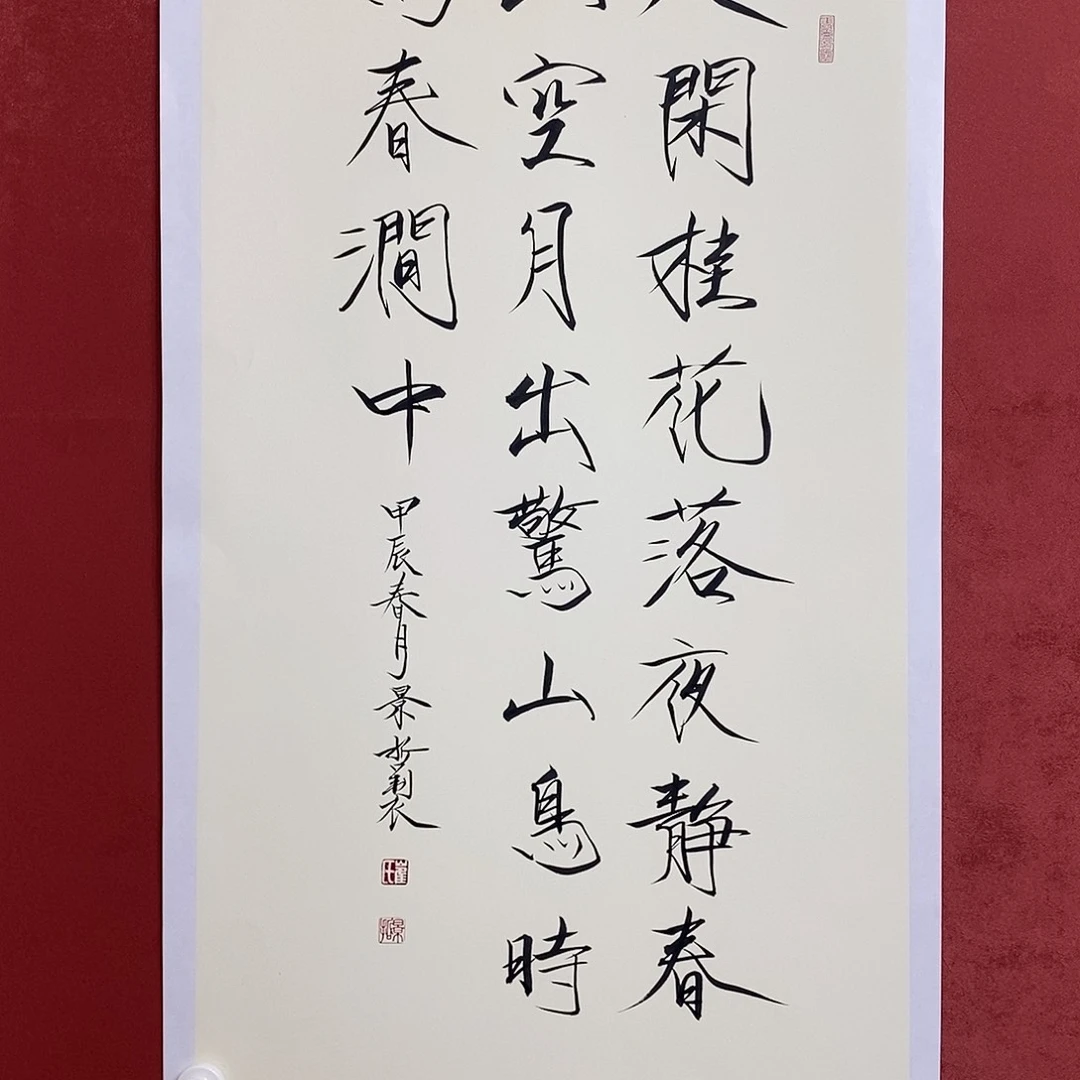 閑桂花落夜靜春
空月出驚山鳥時
春澗中
甲辰春月景哲製
崔氏